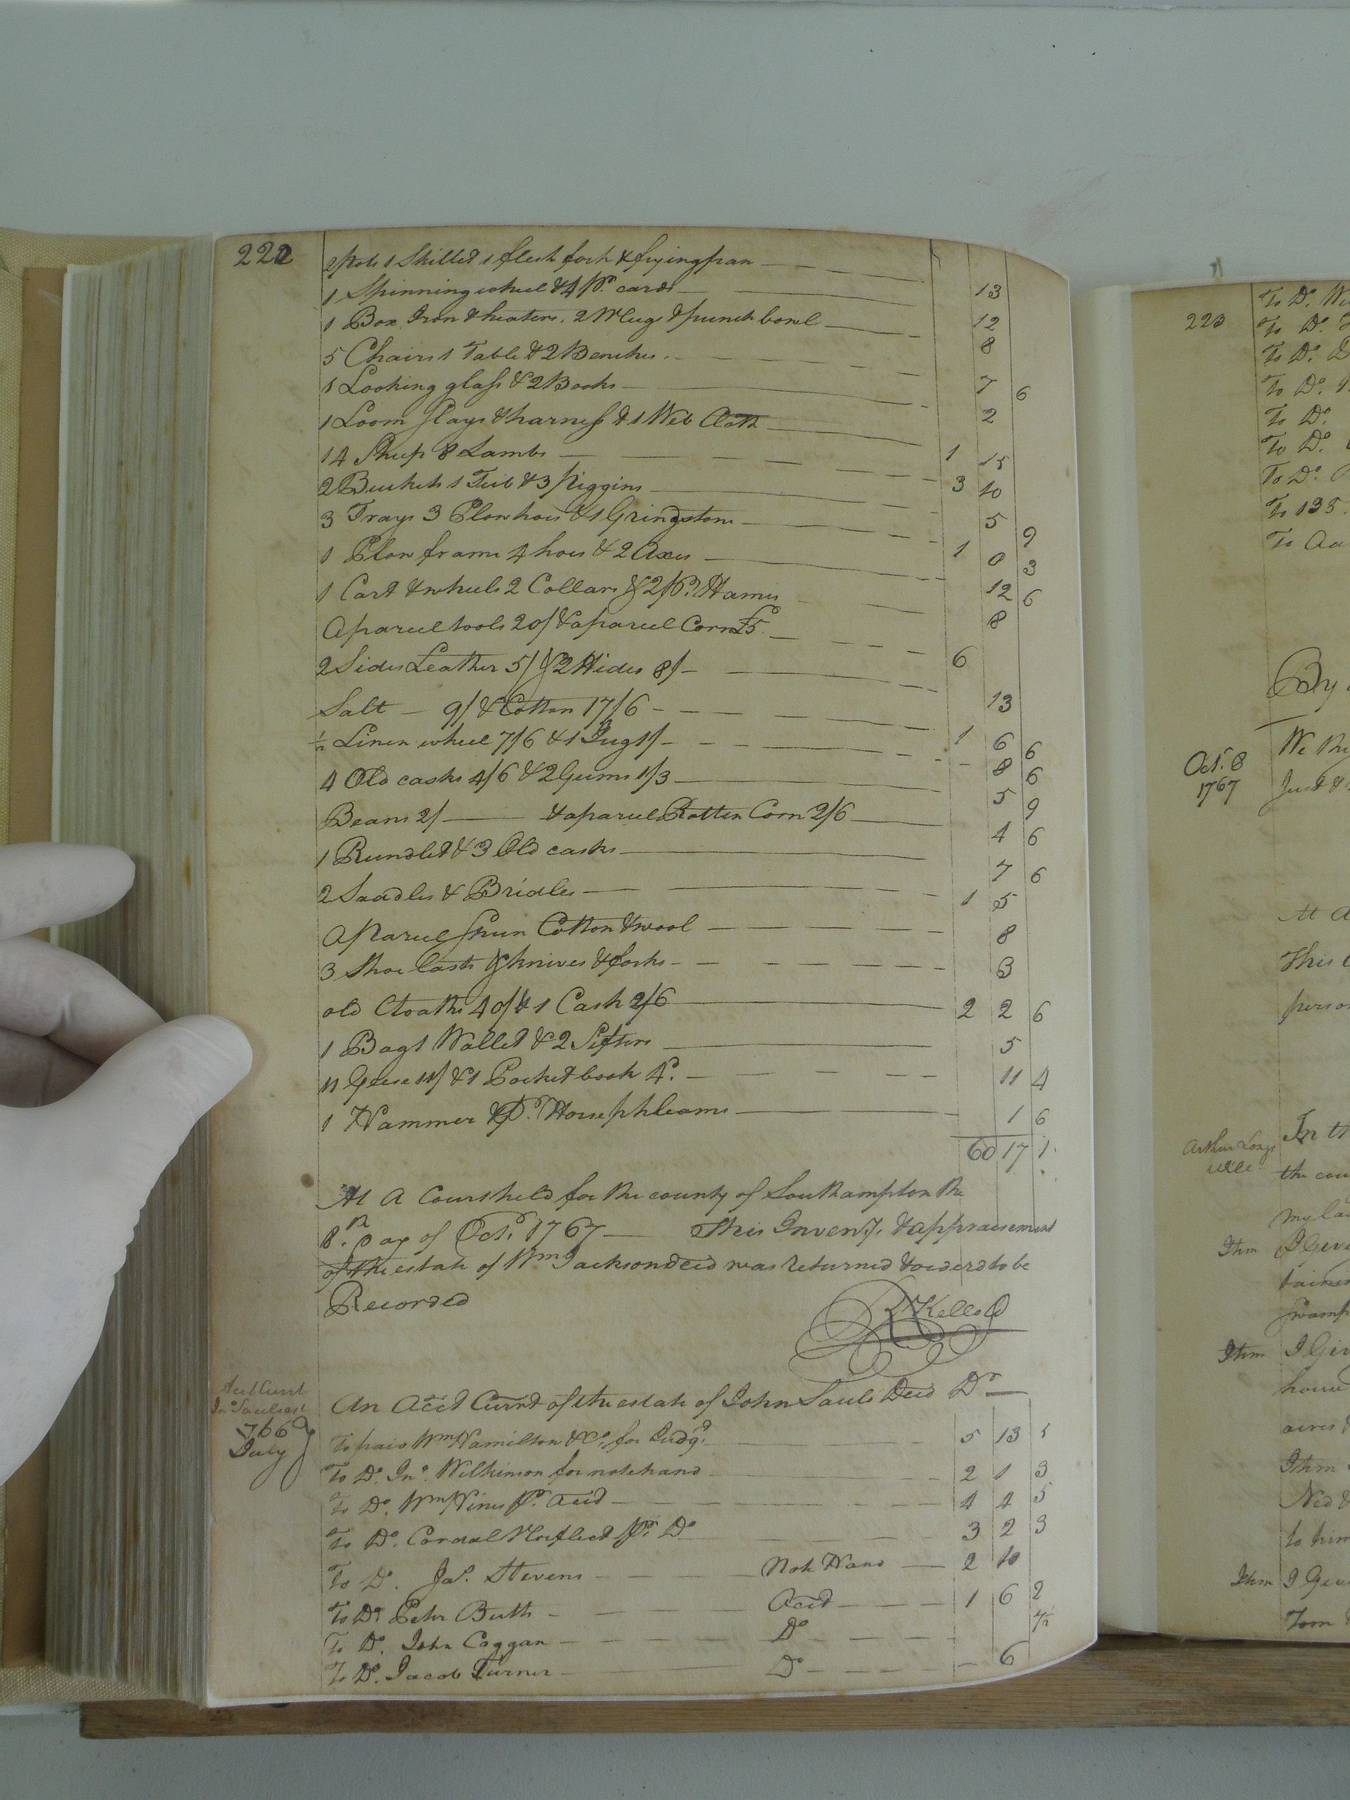 222
2 Pots 1 Skillet 1 flesh fork & frying pan
1 Spinning wheel & 4 pr. cards 13
1 Box Iron & heaters. 2 Mugs & punch bowl 12
5 Chairs 1 Table & 2 Benches. 8
1 Looking glass & 2 Books 7 6
1 Loom Slays & harness & 1 Web Cloth 2
14 Sheep 8 Lambs 1 15
2 Buckets 1 Tub & 3 piggins 3 10
3 Trays 3 Plow hoes & 1 Grindstone 5 9
1 Plow frame 4 hoes & 2 Axes 1 0 3
1 Cart & wheels 2 Collars & 2 pr. Hames 12 6
A parcel tools 20/ & a parcel Corn £5. 8
2 Sides Leather 5/ & 2 Hides 8/ 6
Salt 9/ & Cotton 17/6 13
½ Linen wheel 7/6 & 1 Jug 1/ 1 6 6
4 Old casks 4/6 & 2 Gums 1/3 8 6
Beans 2/ & a parcel Rotten Corn 2/6 5 9
1 Rundlet & 3 Old casks 4 6
2 Saddles & Bridles 7 6
A Parcel Spun Cotton & wool 1 5
8
3 Shoe lasts & knives & forks 3
old Cloaths 40/ & 1 Cask 2/6 2 2 6
1 Bag 1 Wallet & 2 Sifters 5
11 Geese 11/ & 1 Pocket book 4d. 11 4
1 Hammer & pr. Horse phleams 1 6
60 17 1
At A Court held for the county of Southampton the
8th. Day of Oct. 1767 This Inventy. & appraisement
of the estate of Wm Jackson decd was returned & orderd to be
Recorded
R Kello
Acct Curnt
Jno Sauls est
1766
July
An Acct Curnt of the estate of John Sauls Decd Dr
To paid Wm Hamilton & Co. for 5 13 5
To Do. Jno. Wilkinson for note hand 2 1 3
To Do. Wm Vines pr. acct 4 4 5
To Do. Cordal Norfleet pr. Do 3 2 3
To Do. Jas. Stevens Note Hand 2 10
To Do. Peter Butts Acct 1 6 2
To Do. John Coggan Do 7½
To Do. Jacob Turner Do 6
223
To Do. W
To Do.
To Do. D
To Do.
To Do.
To Do.
To Do.
To 135.
To
By
Oct. 8
1767
We the
Just &
At A
This
person
Arthur Longs
Will
In th
the cou
my la
Itm I Give
Itm I Giv
house
acres
Itm
Ned &
to him
Itm I Give
Tom